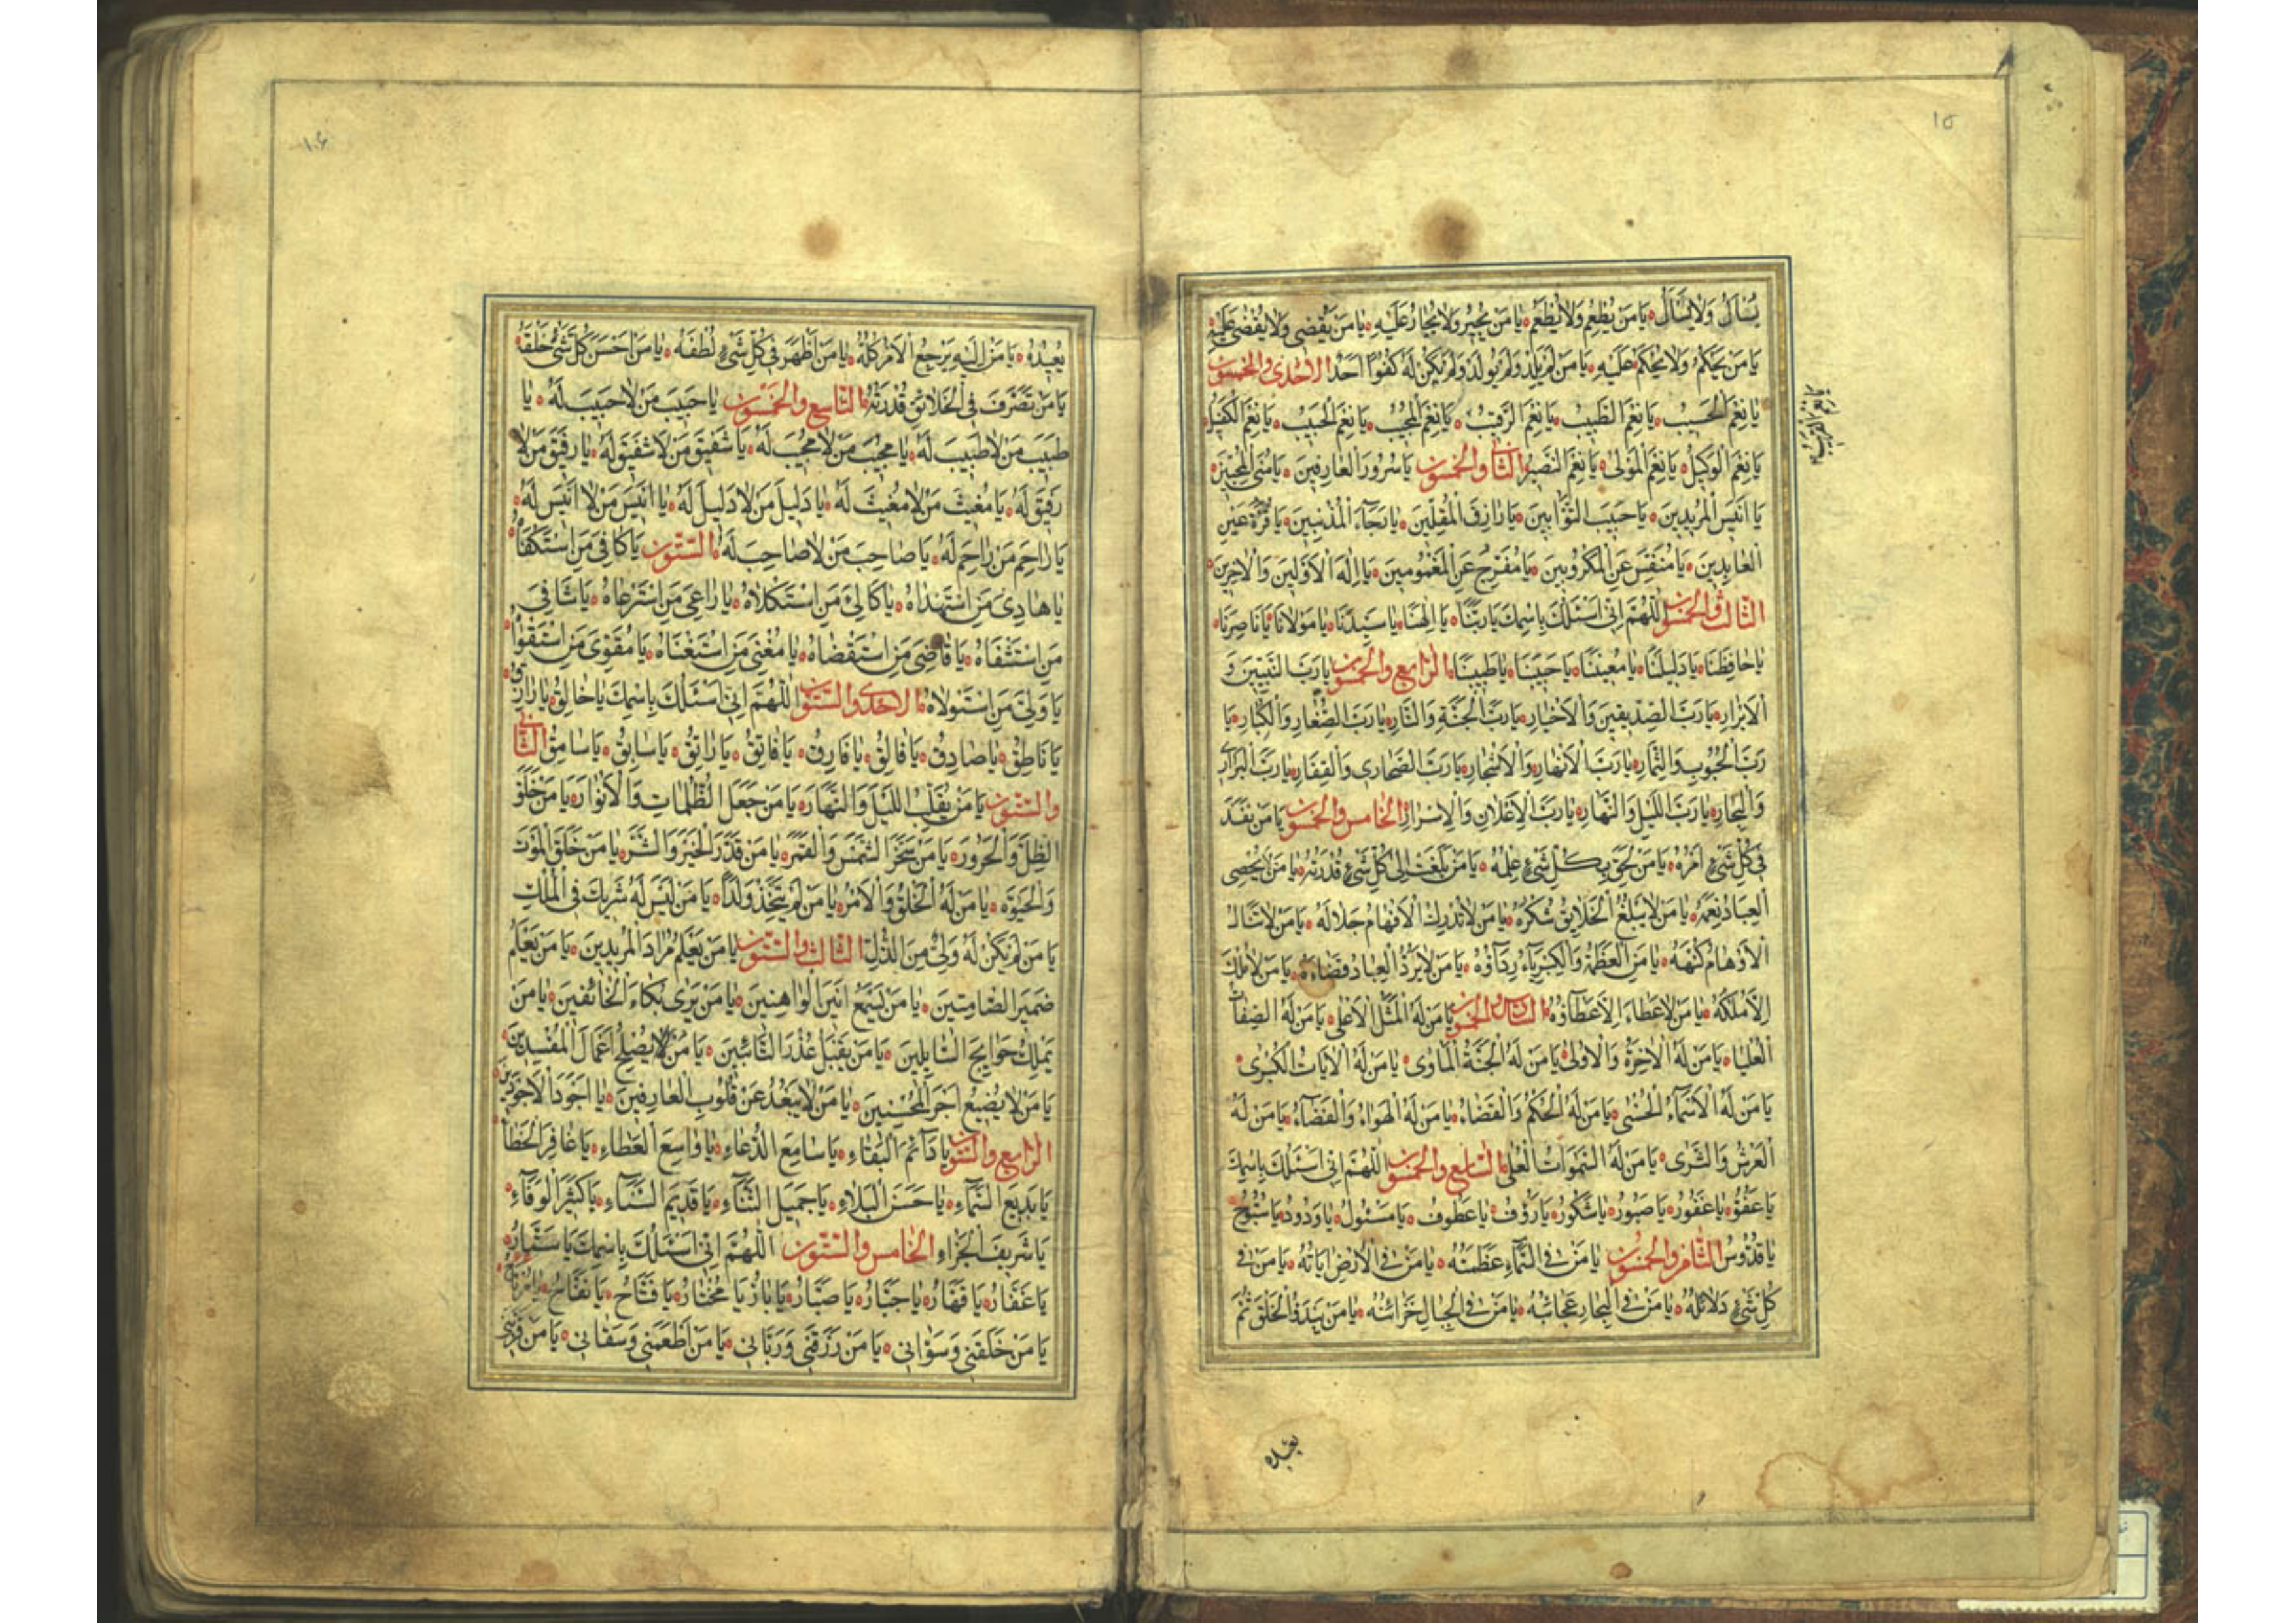 ١٥
يُسْأَلُ وَلَا يَسْأَلُ يَا مَنْ يُطْعِمُ وَلَا يُطْعَمُ يَا مَنْ يُجِيرُ وَلَا يُجَارُ عَلَيْهِ يَا مَنْ يَقْضِي وَلَا يُقْضَى عَلَيْهِ
يَا مَنْ يَحْكُمُ وَلَا يُحْكَمُ عَلَيْهِ يَا مَنْ لَمْ يَلِدْ وَلَمْ يُولَدْ وَلَمْ يَكُنْ لَهُ كُفُوًا أَحَدٌ الاحدى والخمسون
يَا نِعْمَ الْحَسِيبُ يَا نِعْمَ الطَّبِيبُ يَا نِعْمَ الرَّقِيبُ يَا نِعْمَ الْمُجِيبُ يَا نِعْمَ الْحَبِيبُ يَا نِعْمَ الْكَفِيلُ
يا نعم القريب
يَا نِعْمَ الْوَكِيلُ يَا نِعْمَ الْمَوْلَى يَا نِعْمَ النَّصِيرُ الثانى والخمسون يَا سُرُورَ الْعَارِفِينَ يَا مُنَى الْمُحِبِّينَ
يَا أَنِيسَ الْمُرِيدِينَ يَا حَبِيبَ التَّوَّابِينَ يَا رَازِقَ الْمُقِلِّينَ يَا رَجَاءَ الْمُذْنِبِينَ يَا قُرَّةَ عَيْنِ
الْعَابِدِينَ يَا مُنَفِّسَ عَنِ الْمَكْرُوبِينَ يَا مُفَرِّجَ عَنِ الْمَغْمُومِينَ يَا إِلٰهَ الْأَوَّلِينَ وَالْآخِرِينَ
الثالث والخمسون اللّٰهُمَّ إِنِّي أَسْئَلُكَ بِاسْمِكَ يَا رَبَّنَا يَا إِلٰهَنَا يَا سَيِّدَنَا يَا مَوْلَانَا يَا نَاصِرَنَا
يَا حَافِظَنَا يَا دَلِيلَنَا يَا مُعِينَنَا يَا حَبِيبَنَا يَا طَبِيبَنَا الرابع والخمسون يَا رَبَّ النَّبِيِّينَ وَ
الْأَبْرَارِ يَا رَبَّ الصِّدِّيقِينَ وَالْأَخْيَارِ يَا رَبَّ الْجَنَّةِ وَالنَّارِ يَا رَبَّ الصِّغَارِ وَالْكِبَارِ يَا
رَبَّ الْحُبُوبِ وَالثِّمَارِ يَا رَبَّ الْأَنْهَارِ وَالْأَشْجَارِ يَا رَبَّ الصَّحَارِي وَالْقِفَارِ يَا رَبَّ الْبَرَارِي
وَالْبِحَارِ يَا رَبَّ اللَّيْلِ وَالنَّهَارِ يَا رَبَّ الْإِعْلَانِ وَالْإِسْرَارِ الخامس والخمسون يَا مَنْ نَفَذَ
فِي كُلِّ شَيْءٍ أَمْرُهُ يَا مَنْ لَحِقَ بِكُلِّ شَيْءٍ عِلْمُهُ يَا مَنْ بَلَغَتْ إِلَى كُلِّ شَيْءٍ قُدْرَتُهُ يَا مَنْ لَا يُحْصِي
الْعِبَادُ نِعَمَهُ يَا مَنْ لَا يَبْلُغُ الْخَلَايِقُ شُكْرَهُ يَا مَنْ لَا تُدْرِكُ الْأَفْهَامُ جَلَالَهُ يَا مَنْ لَا تَنَالُ
الْأَوْهَامُ كُنْهَهُ يَا مَنِ الْعَظَمَةُ وَالْكِبْرِيَاءُ رِدَاؤُهُ يَا مَنْ لَا يَرُدُّ الْعِبَادُ قَضَاءَهُ يَا مَنْ لَا مُلْكَ
إِلَّا مُلْكُهُ يَا مَنْ لَا عَطَاءَ إِلَّا عَطَاؤُهُ السادس والخمسون يَا مَنْ لَهُ الْمَثَلُ الْأَعْلَى يَا مَنْ لَهُ الصِّفَاتُ
الْعُلْيَا يَا مَنْ لَهُ الْآخِرَةُ وَالْأُولَى يَا مَنْ لَهُ الْجَنَّةُ الْمَأْوَى يَا مَنْ لَهُ الْآيَاتُ الْكُبْرَى
يَا مَنْ لَهُ الْأَسْمَاءُ الْحُسْنَى يَا مَنْ لَهُ الْحُكْمُ وَالْقَضَاءُ يَا مَنْ لَهُ الْهَوَاءُ وَالْفَضَاءُ يَا مَنْ لَهُ
الْعَرْشُ وَالثَّرَى يَا مَنْ لَهُ السَّمٰوَاتُ الْعُلَى السابع والخمسون اللّٰهُمَّ إِنِّي أَسْئَلُكَ بِاسْمِكَ
يَا عَفُوُّ يَا غَفُورُ يَا صَبُورُ يَا شَكُورُ يَا رَؤُفُ يَا عَطُوفُ يَا مَسْئُولُ يَا وَدُودُ يَا سُبُّوحُ
يَا قُدُّوسُ الثامن والخمسون يَا مَنْ فِي السَّمَاءِ عَظَمَتُهُ يَا مَنْ فِي الْأَرْضِ آيَاتُهُ يَا مَنْ فِي
كُلِّ شَيْءٍ دَلَائِلُهُ يَا مَنْ فِي الْبِحَارِ عَجَائِبُهُ يَا مَنْ فِي الْجِبَالِ خَزَائِنُهُ يَا مَنْ يَبْدَؤُا الْخَلْقَ ثُمَّ
يعيده
١٠۶
يُعِيدُهُ يَا مَنْ إِلَيْهِ يَرْجِعُ الْأَمْرُ كُلُّهُ يَا مَنْ أَظْهَرَ فِي كُلِّ شَيْءٍ لُطْفَهُ يَا مَنْ أَحْسَنَ كُلَّ شَيْءٍ خَلْقَهُ
يَا مَنْ تَصَرَّفَ فِي الْخَلَائِقِ قُدْرَتُهُ التاسع والخمسون يَا حَبِيبَ مَنْ لَا حَبِيبَ لَهُ يَا
طَبِيبَ مَنْ لَا طَبِيبَ لَهُ يَا مُجِيبَ مَنْ لَا مُجِيبَ لَهُ يَا شَفِيقَ مَنْ لَا شَفِيقَ لَهُ يَا رَفِيقَ مَنْ لَا
رَفِيقَ لَهُ يَا مُغِيثَ مَنْ لَا مُغِيثَ لَهُ يَا دَلِيلَ مَنْ لَا دَلِيلَ لَهُ يَا أَنِيسَ مَنْ لَا أَنِيسَ لَهُ
يَا رَاحِمَ مَنْ رَاحِمَ لَهُ يَا صَاحِبَ مَنْ لَا صَاحِبَ لَهُ الستون يَا كَافِيَ مَنِ اسْتَكْفَاهُ
يَا هَادِيَ مَنِ اسْتَهْدَاهُ يَا كَالِئَ مَنِ اسْتَكْلَاهُ يَا رَاعِيَ مَنِ اسْتَرْعَاهُ يَا شَافِيَ
مَنِ اسْتَشْفَاهُ يَا قَاضِيَ مَنِ اسْتَقْضَاهُ يَا مُغْنِيَ مَنِ اسْتَغْنَاهُ يَا مُقَوِّيَ مَنِ اسْتَقْوَاهُ
يَا وَلِيَّ مَنِ اسْتَوْلَاهُ الاحدى والستون اللّٰهُمَّ إِنِّي أَسْئَلُكَ بِاسْمِكَ يَا خَالِقُ يَا رَازِقُ
يَا نَاطِقُ يَا صَادِقُ يَا فَالِقُ يَا فَارِقُ يَا فَاتِقُ يَا رَاتِقُ يَا سَابِقُ يَا سَامِقُ الثانى
والستون يَا مَنْ يُقَلِّبُ اللَّيْلَ وَالنَّهَارَ يَا مَنْ جَعَلَ الظُّلُمَاتِ وَالْأَنْوَارَ يَا مَنْ خَلَقَ
الظِّلَّ وَالْحَرُورَ يَا مَنْ سَخَّرَ الشَّمْسَ وَالْقَمَرَ يَا مَنْ قَدَّرَ الْخَيْرَ وَالشَّرَّ يَا مَنْ خَلَقَ الْمَوْتَ
وَالْحَيٰوةَ يَا مَنْ لَهُ الْخَلْقُ وَالْأَمْرُ يَا مَنْ لَمْ يَتَّخِذْ وَلَدًا يَا مَنْ لَيْسَ لَهُ شَرِيكٌ فِي الْمُلْكِ
يَا مَنْ لَمْ يَكُنْ لَهُ وَلِيٌّ مِنَ الذُّلِّ الثالث والستون يَا مَنْ يَعْلَمُ مُرَادَ الْمُرِيدِينَ يَا مَنْ يَعْلَمُ
ضَمِيرَ الصَّامِتِينَ يَا مَنْ يَسْمَعُ أَنِينَ الْوَاهِنِينَ يَا مَنْ يَرَى بُكَاءَ الْخَائِفِينَ يَا مَنْ
يَمْلِكُ حَوَايِجَ السَّايِلِينَ يَا مَنْ يَقْبَلُ عُذْرَ التَّائِبِينَ يَا مَنْ لَا يُصْلِحُ أَعْمَالَ الْمُفْسِدِينَ
يَا مَنْ لَا يُضِيعُ أَجْرَ الْمُحْسِنِينَ يَا مَنْ لَا يَبْعُدُ عَنْ قُلُوبِ الْعَارِفِينَ يَا أَجْوَدَ الْأَجْوَدِينَ
الرابع والستون يَا دَائِمَ الْبَقَاءِ يَا سَامِعَ الدُّعَاءِ يَا وَاسِعَ الْعَطَاءِ يَا غَافِرَ الْخَطَاءِ
يَا بَدِيعَ السَّمَاءِ يَا حَسَنَ الْبَلَاءِ يَا جَمِيلَ الثَّنَاءِ يَا قَدِيمَ السَّنَاءِ يَا كَثِيرَ الْوَفَاءِ
يَا شَرِيفَ الْجَزَاءِ الخامس والستون اللّٰهُمَّ إِنِّي أَسْئَلُكَ بِاسْمِكَ يَا سَتَّارُ
يَا غَفَّارُ يَا قَهَّارُ يَا جَبَّارُ يَا صَبَّارُ يَا بَارُّ يَا مُخْتَارُ يَا فَتَّاحُ يَا نَفَّاحُ يَا مُرْتَاحُ
يَا مَنْ خَلَقَنِي وَسَوَّانِي يَا مَنْ رَزَقَنِي وَرَبَّانِي يَا مَنْ أَطْعَمَنِي وَسَقَانِي يَا مَنْ قَرَّبَنِي